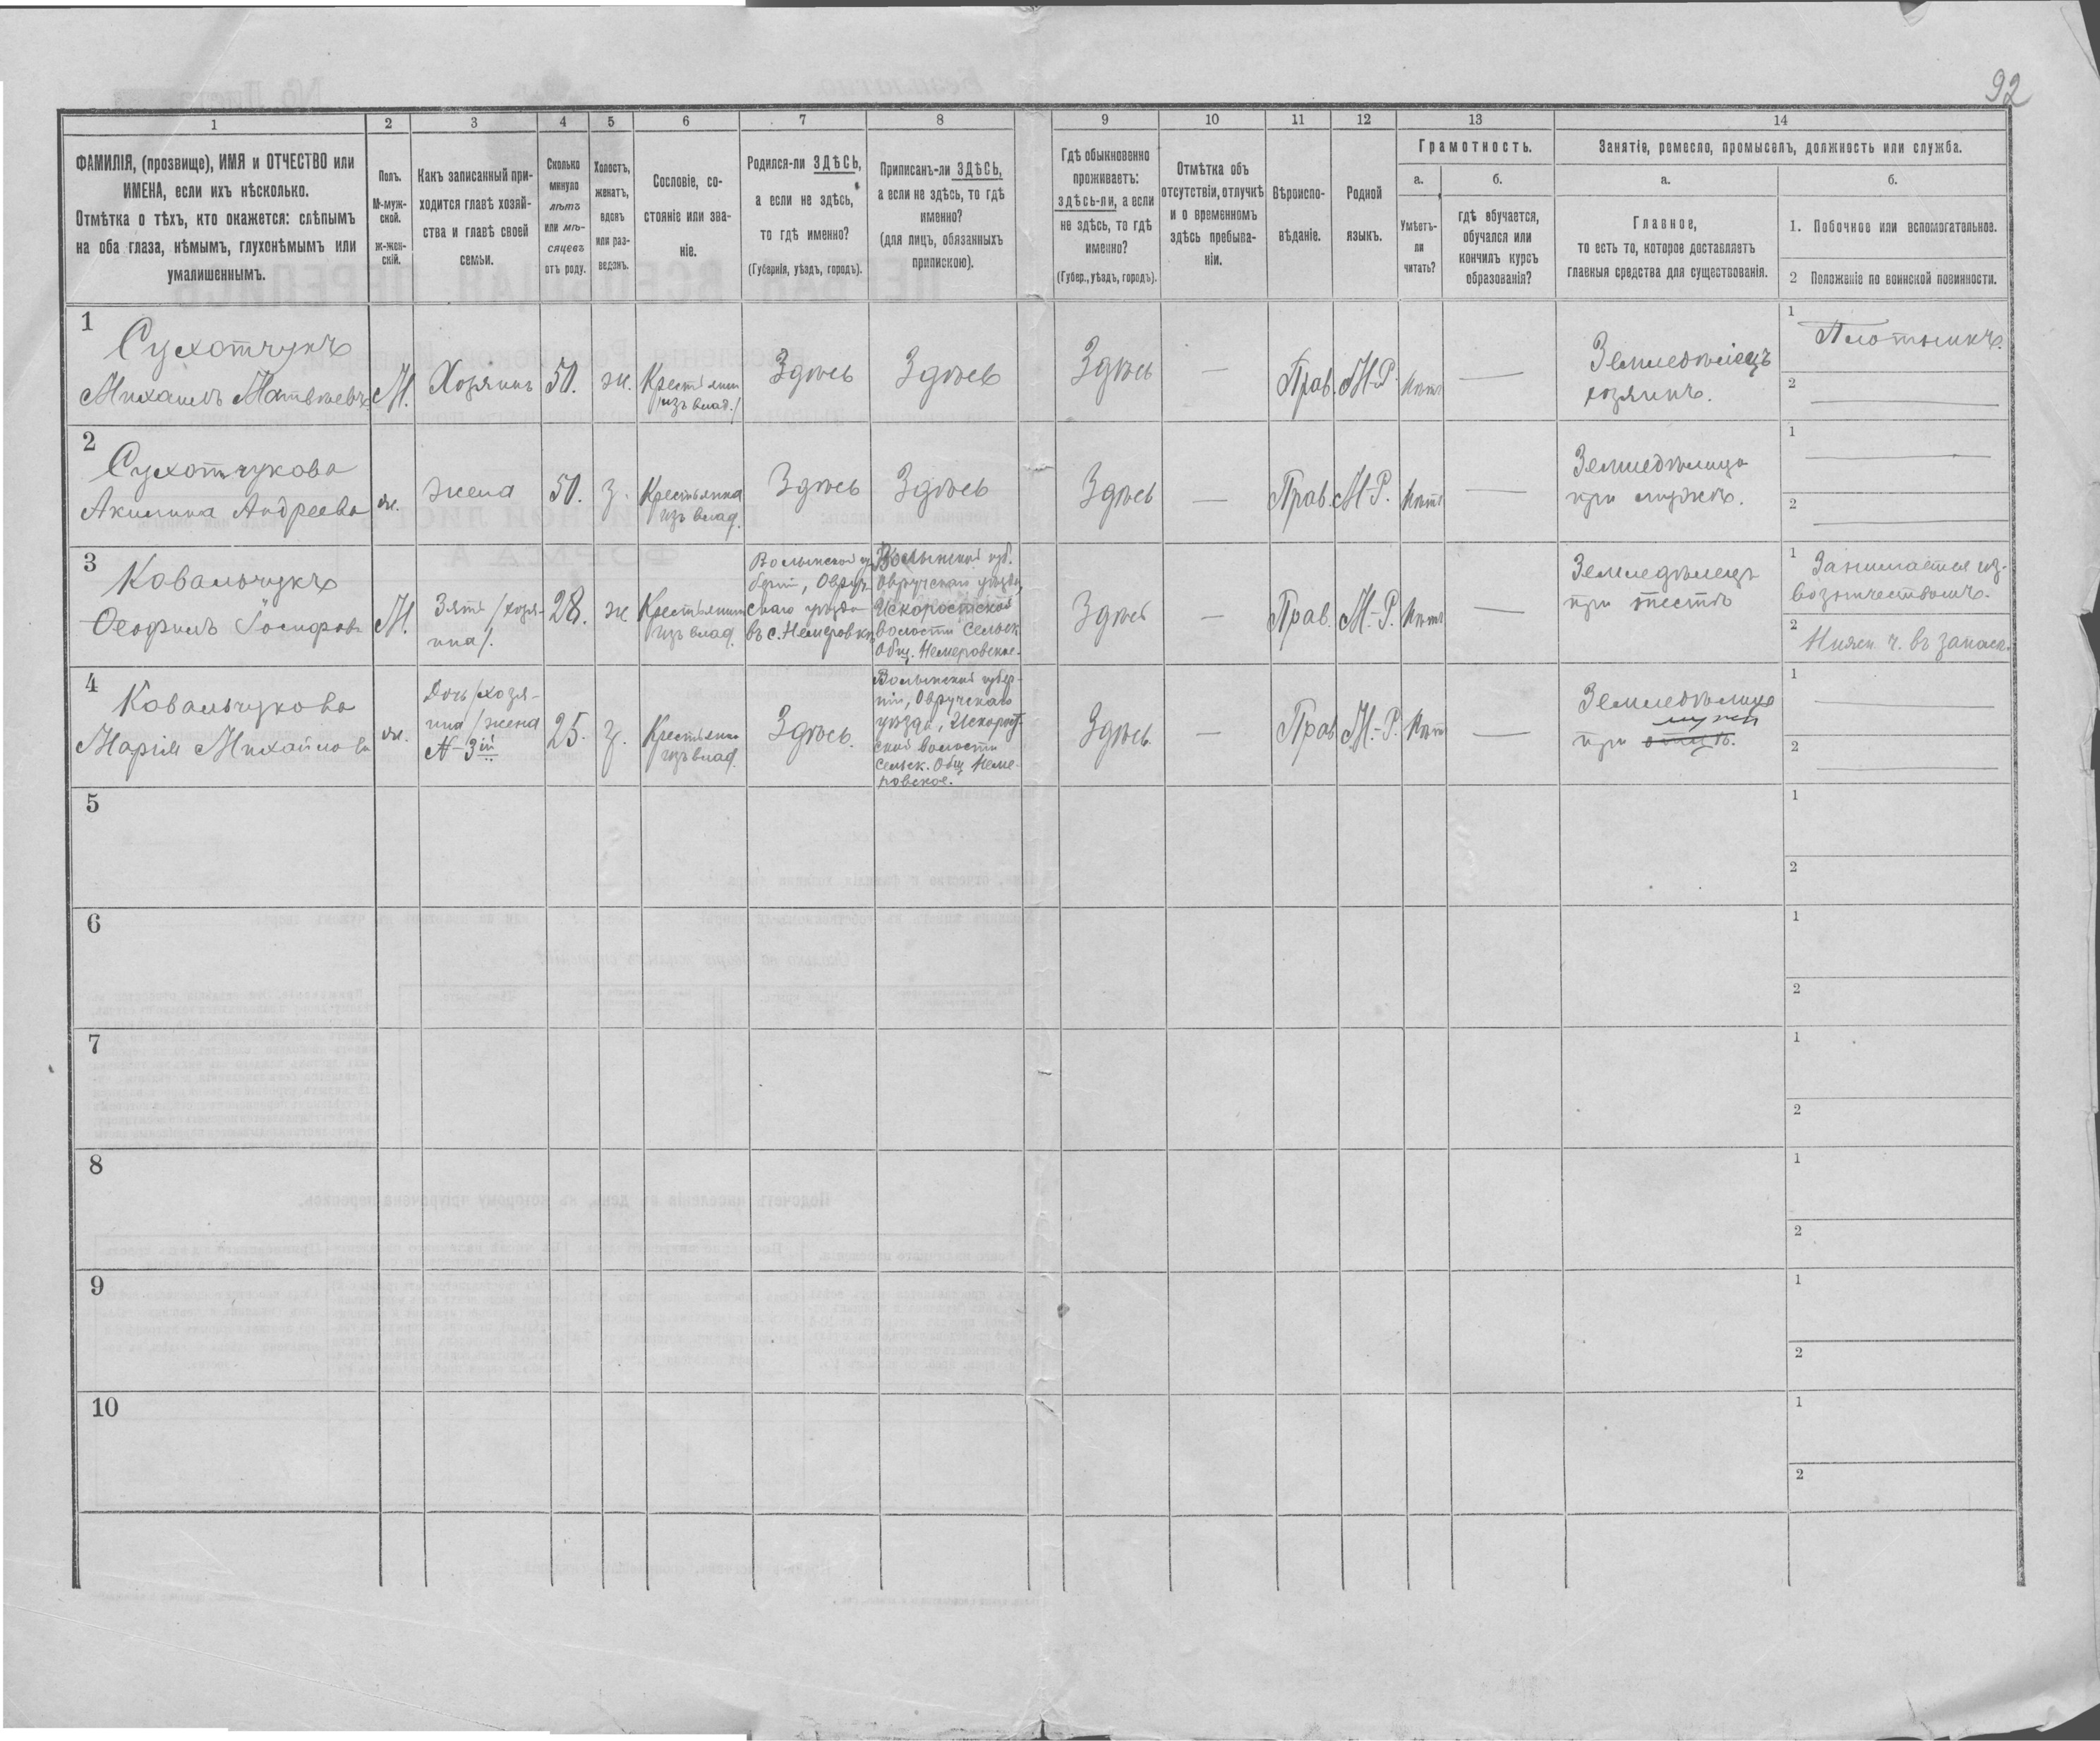 92
1
2
3
4
5
6
7
8
9
10
11
12
13
14
ФАМИЛІЯ, (прозвище), ИМЯ и ОТЧЕСТВО или
ИМЕНА, если ихъ нѣсколько.
Отмѣтка о тѣхъ, кто окажется: слѣпымъ
на оба глаза, нѣмымъ, глухонѣмымъ или
умалишеннымъ.
Полъ.
М-муж-
ской.
ж-жен-
скій.
Какъ записанный при-
ходится главѣ хозяй-
ства и главѣ своей
семьи.
Сколько
минуло
лѣтъ
или мѣ-
сяцевъ
отъ роду.
Холостъ,
женатъ,
вдовъ
или раз-
веденъ.
Сословіе, со-
стояніе или зва-
ніе.
Родился-ли ЗДѢСЬ,
а если не здѣсь,
то гдѣ именно?
(Губернія, уѣздъ, городъ).
Приписанъ-ли ЗДѢСЬ,
а если не здѣсь, то гдѣ
именно?
(для лицъ, обязанныхъ
припискою).
Гдѣ обыкновенно
проживаетъ:
здѣсь-ли, а если
не здѣсь, то гдѣ
именно?
(Губер., уѣздъ, городъ).
Отмѣтка объ
отсутствіи, отлучкѣ
и о временномъ
здѣсь пребыва-
ніи.
Вѣроиспо-
вѣданіе.
Родной
языкъ.
Грамотность.
а.
Умѣетъ-
ли
читать?
б.
гдѣ обучается,
обучался или
кончилъ курсъ
образованія?
Занятіе, ремесло, промыселъ, должность или служба.
а.
Главное,
то есть то, которое доставляетъ
главныя средства для существованія.
б.
1. Побочное или вспомогательное.
2 Положеніе по воинской повинности.
1
Сухотчукъ
Михаилъ Матвѣевъ
М.
Хозяинъ
50.
ж.
Крестьянин
/изъ влад./
Здѣсь
Здѣсь
Здѣсь
—
Прав.
М-Р.
Нѣтъ
—
Земледѣлецъ
хозяинъ.
1 Плотникъ.
2
2
Сухотчукова
Акилина Андреева
ж.
жена
50.
з.
Крестьянка
изъ влад.
Здѣсь
Здѣсь
Здѣсь
—
Прав.
М-Р.
Нѣтъ
—
Земледѣлица
при мужѣ.
1
2
3
Ковальчукъ
Ѳеофилъ Іосифовъ
М.
Зять /хозя-
ина/.
28.
ж
Крестьянин
изъ влад.
Волынской гу-
берніи, Овруч-
скаго уѣзда
въ с. Немеровкѣ
Волынской губ.
Овручскаго уѣзда,
Искоростской
волости Сельск.
Общ. Немеровское.
Здѣсь
Прав.
М.-Р.
Нѣтъ
—
Земледѣлецъ
при тестѣ
1 Занимается из-
возничествомъ.
2 Нижн. ч. въ запасѣ.
4
Ковальчукова
Марія Михайлова
ж.
Дочь /хозя-
ина/ жена
№-3ій
25.
з.
Крестьянка
изъ влад.
Здѣсь.
Волынской губер-
ніи, Овручскаго
уѣзда, Искорост-
ской волости
Сельск. Общ. Неме-
ровское.
Здѣсь.
—
Прав.
М.-Р.
Нѣтъ
—
Земледѣлица
мужѣ
при отцѣ.
1
2
5
1
2
6
1
2
7
1
2
8
1
2
9
1
2
10
1
2